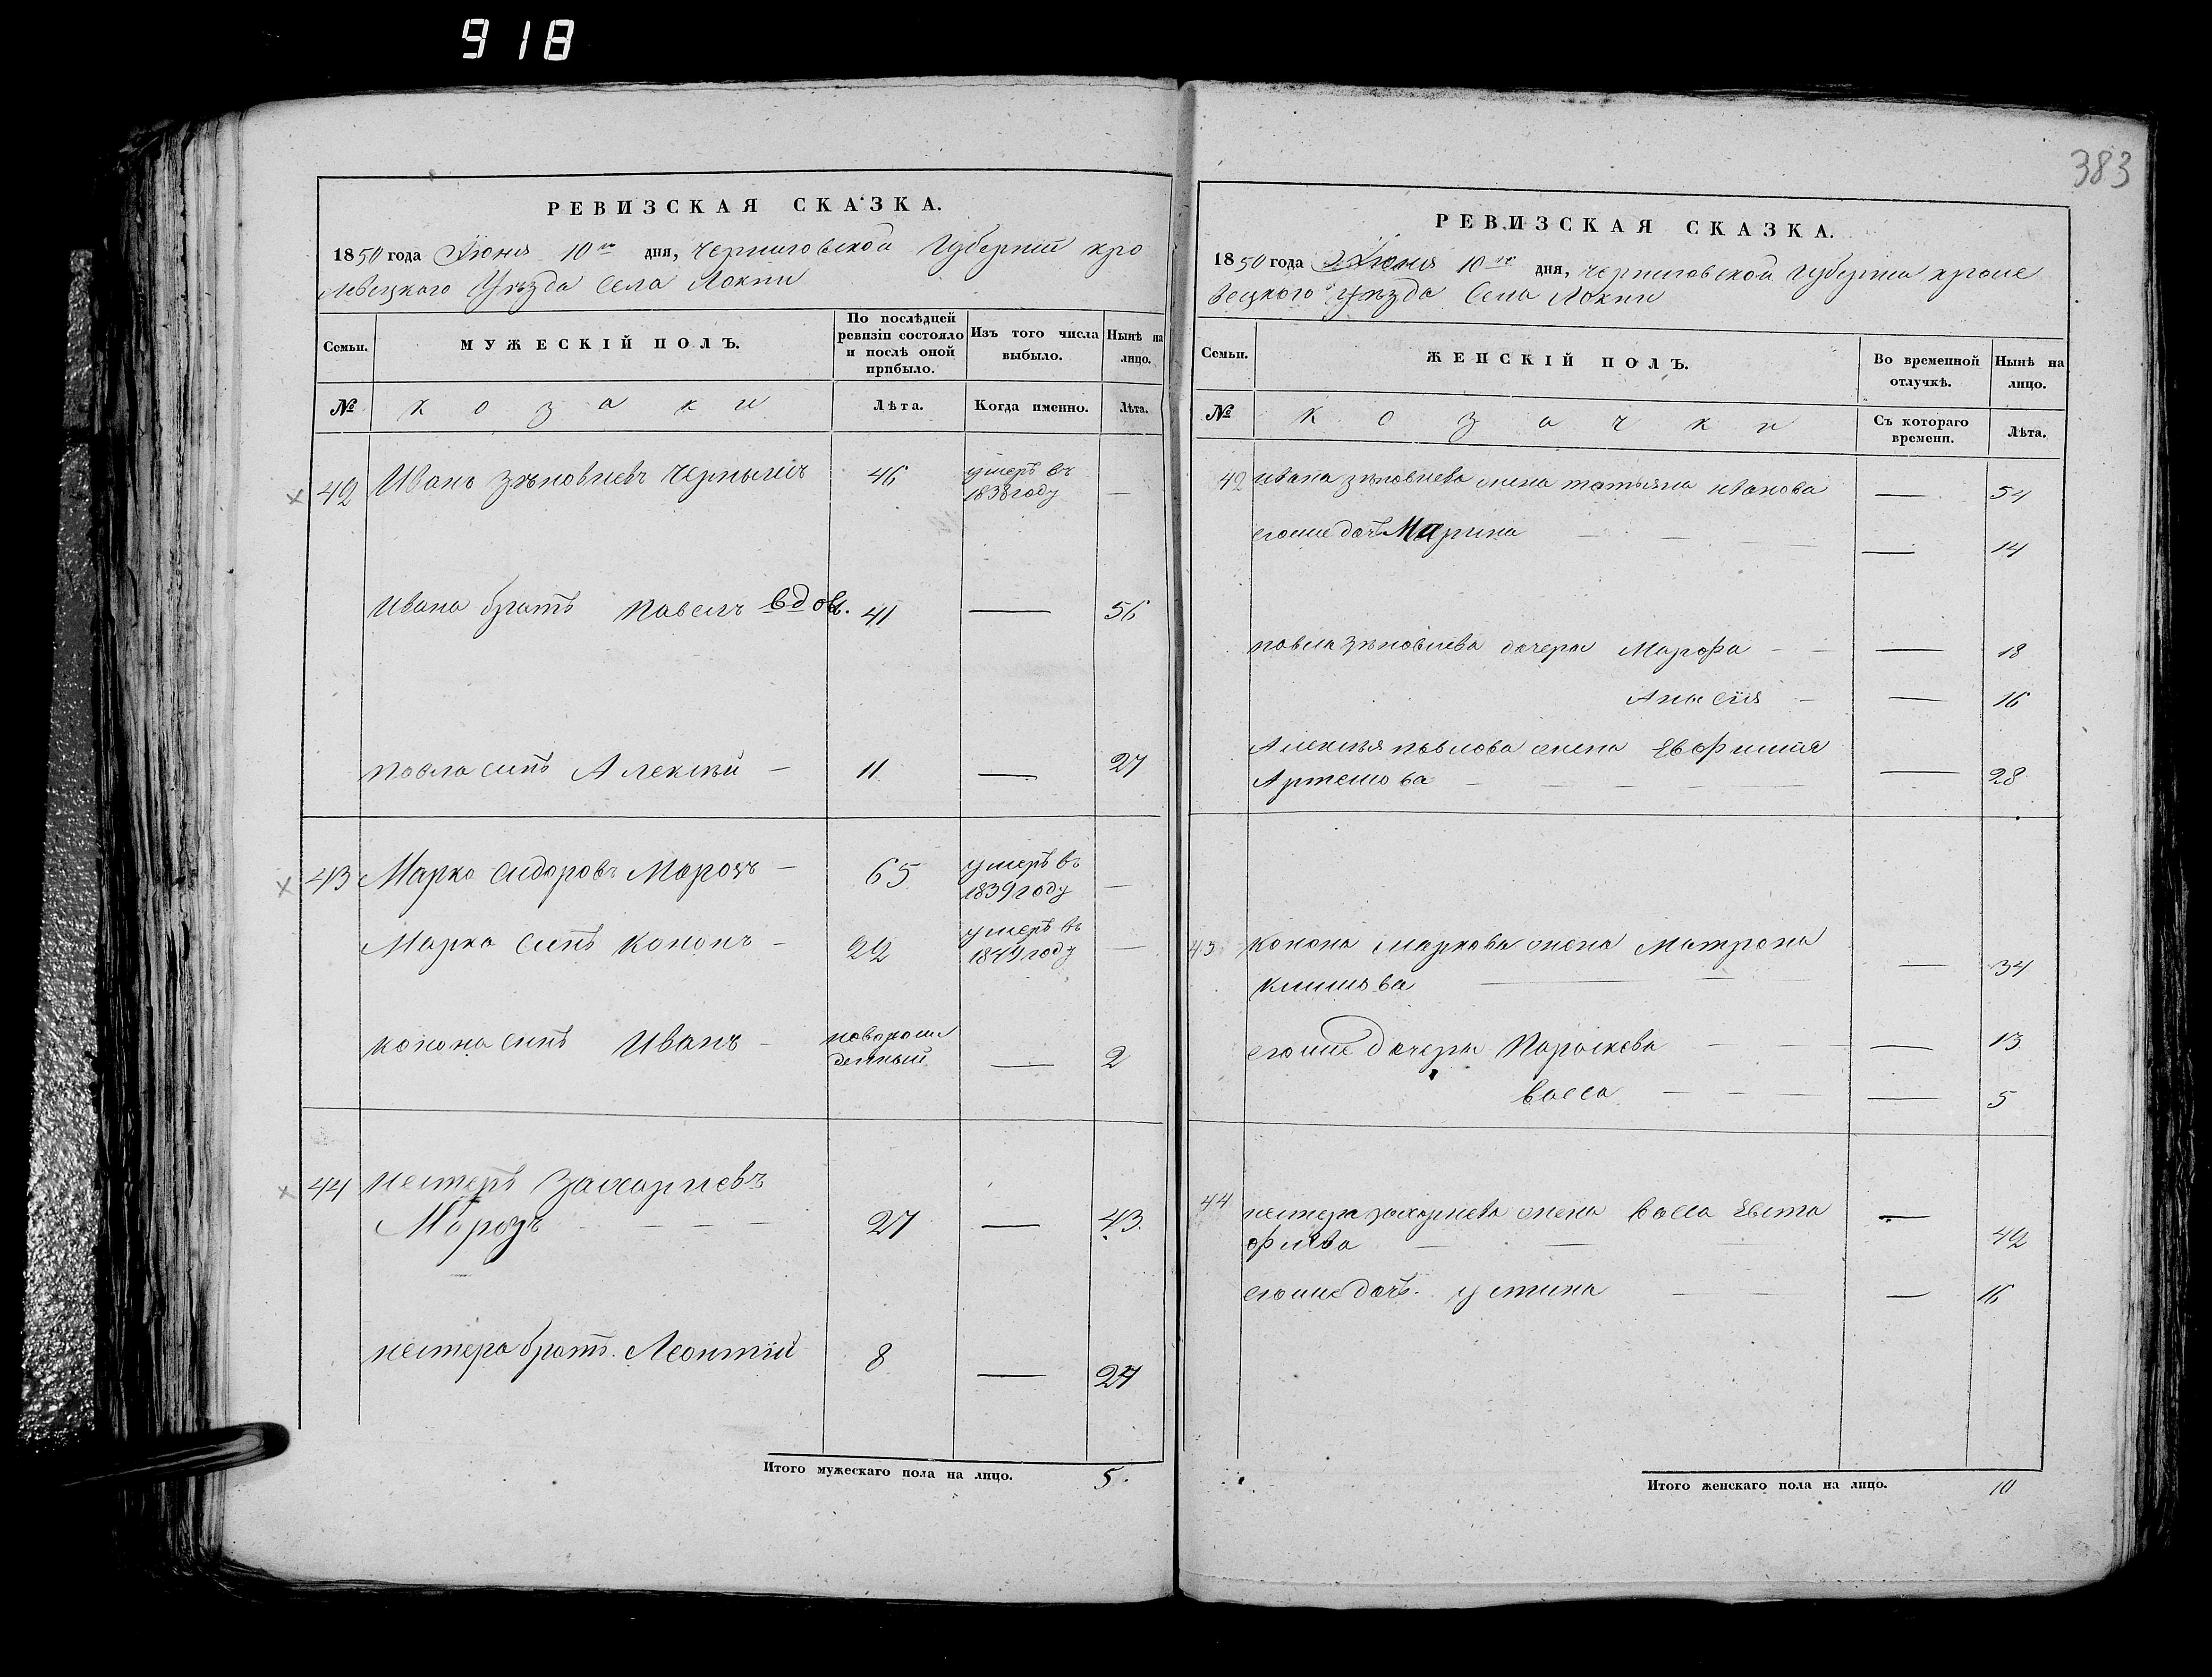 918
383
РЕВИЗСКАЯ СКАЗКА.
1850 года Июня 10го дня, Черниговской Губернии кро
левецкого Уѣзда Села Локни
Семьи. МУЖЕСКІЙ ПОЛЪ. По послѣдней ревизіи состояло и послѣ оной прибыло. Изъ того числа выбыло. Ныне на лицо.
№ козаки Лѣта. Когда именно. Лѣта.
42 Иванъ Зѣновиевъ Чернышъ 46 умеръ въ 1838 году —
Ивана братъ Павелъ вдов. 41 — 56
Павла сынъ Алексѣй — 11 — 27
43 Марко Сидоровъ Морозъ — 65 умеръ въ 1839 году —
Марка сынъ Кононъ — 22 умеръ въ 1849 году —
Конона сынъ Иванъ — новорожденный — 2
44 Нестеръ Захариевъ
Морозъ — — — 27 — 43.
Нестера братъ Леонтий 8 — 24
Итого мужескаго пола на лицо. 5.
РЕВИЗСКАЯ СКАЗКА.
1850 года Июня 10го дня, Черниговской Губернии кроле
вецкого Уѣзда Села Локни
Семьи. ЖЕНСКІЙ ПОЛЪ. Во временной отлучкѣ. Нынѣ на лицо.
№ козачки Съ котораго времени. Лѣта.
42 Ивана Зѣновиева жена Татьяна Иванова — 54
егоже дочь Марина — — — — 14
Павла Зѣновиева дочери Марфа — — — 18
Анасия — — 16
Алексѣя Павлова жена Евфимия
Артемова — — — — — 28
43 Конона Маркова жена Матрона
Климова — — — 34
егоже дочери Параскева — — — — 13
Васса — — — — 5
44 Нестера Захариева жена Васса Евста
фиева — — — — 42
егоже дочь. Устина — — — 16
Итого женскаго пола на лицо. 10